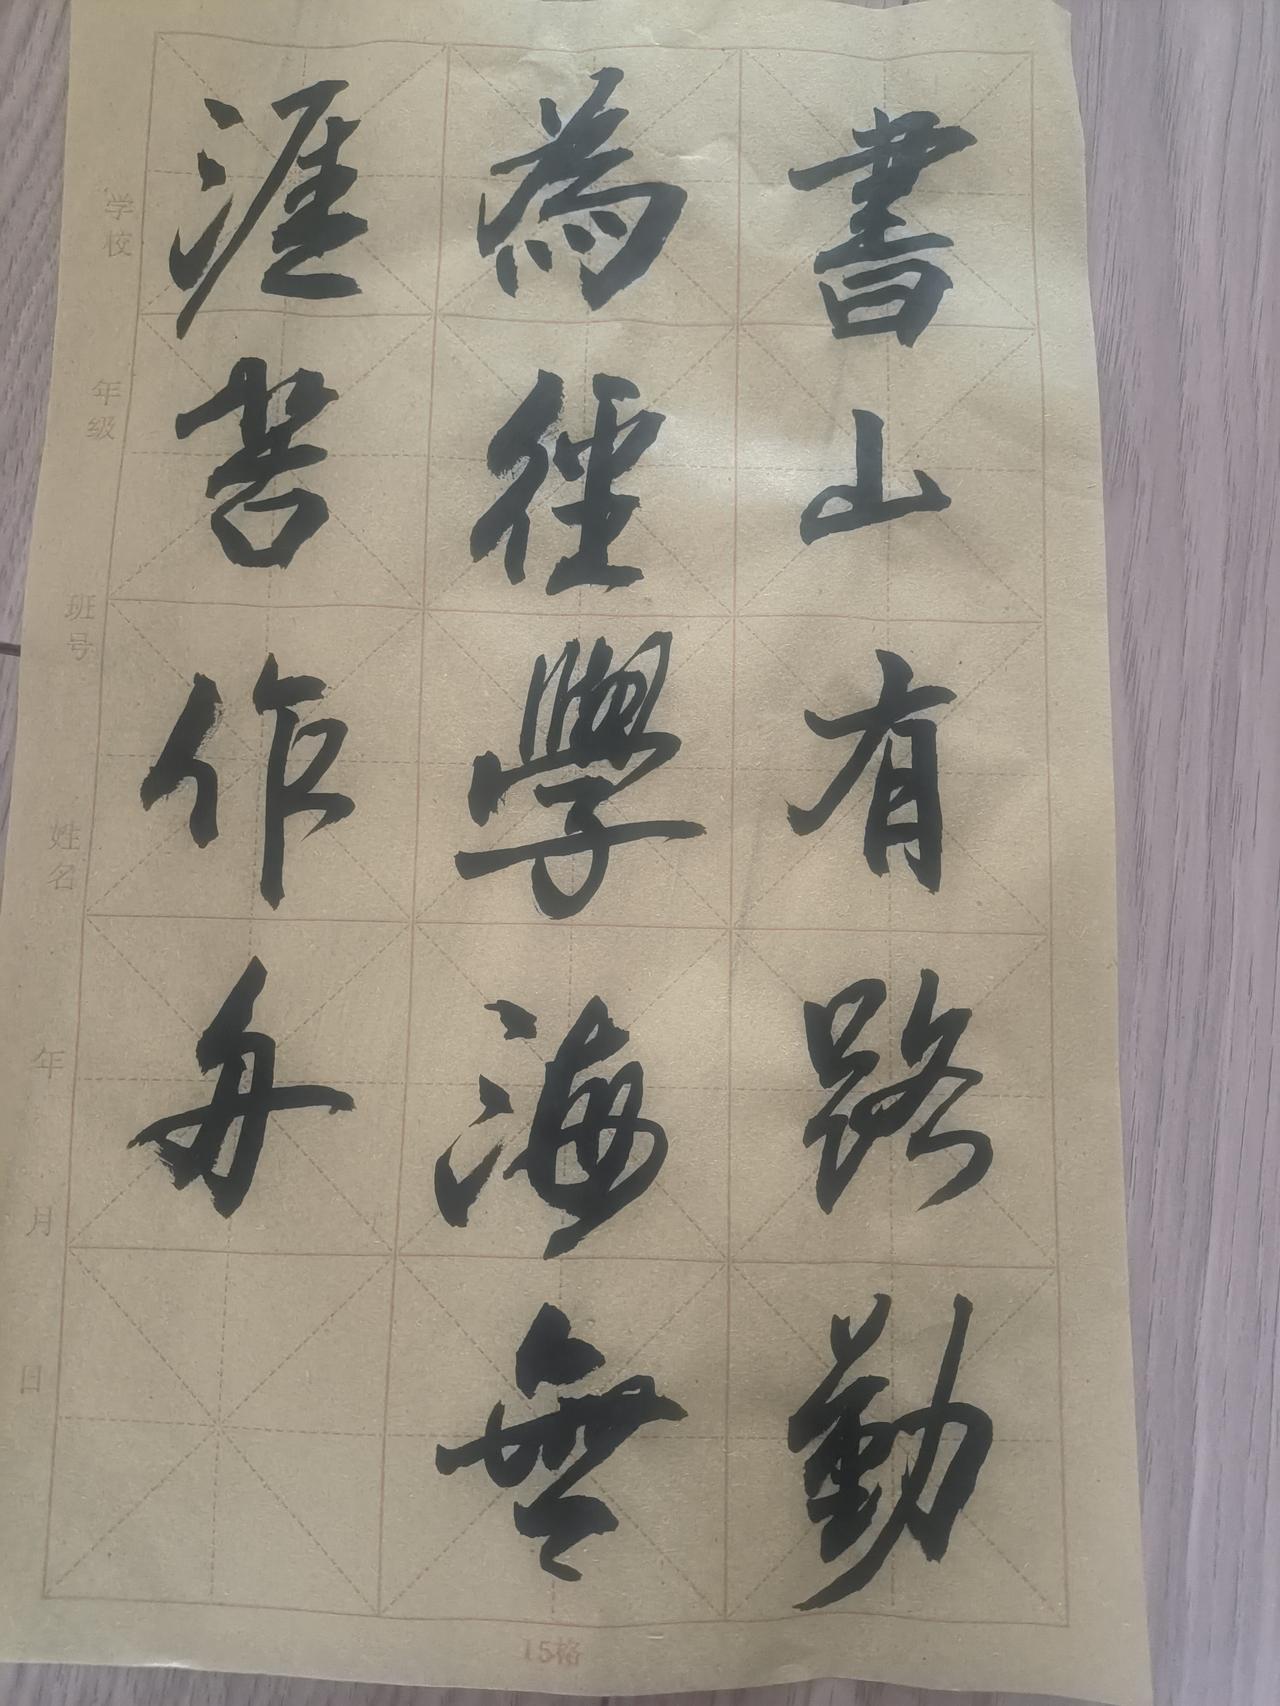 書山有路勤
為徑學海無
涯苦作舟
学校
年级
班号
姓名
年
月
日
15格